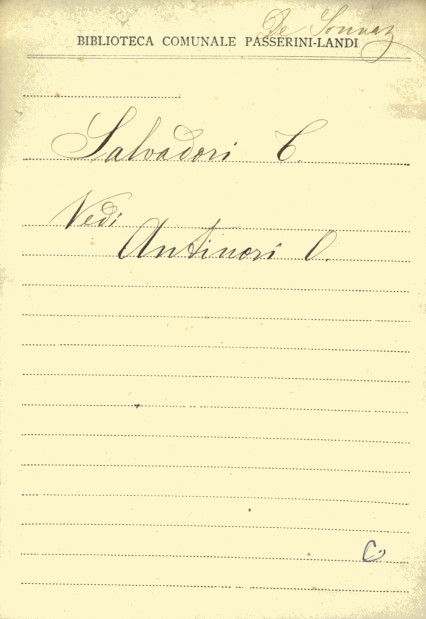 De Sonnaz
BIBLIOTECA COMUNALE PASSERINI-LANDI
Salvadori T.
Vedi
Antinori O.